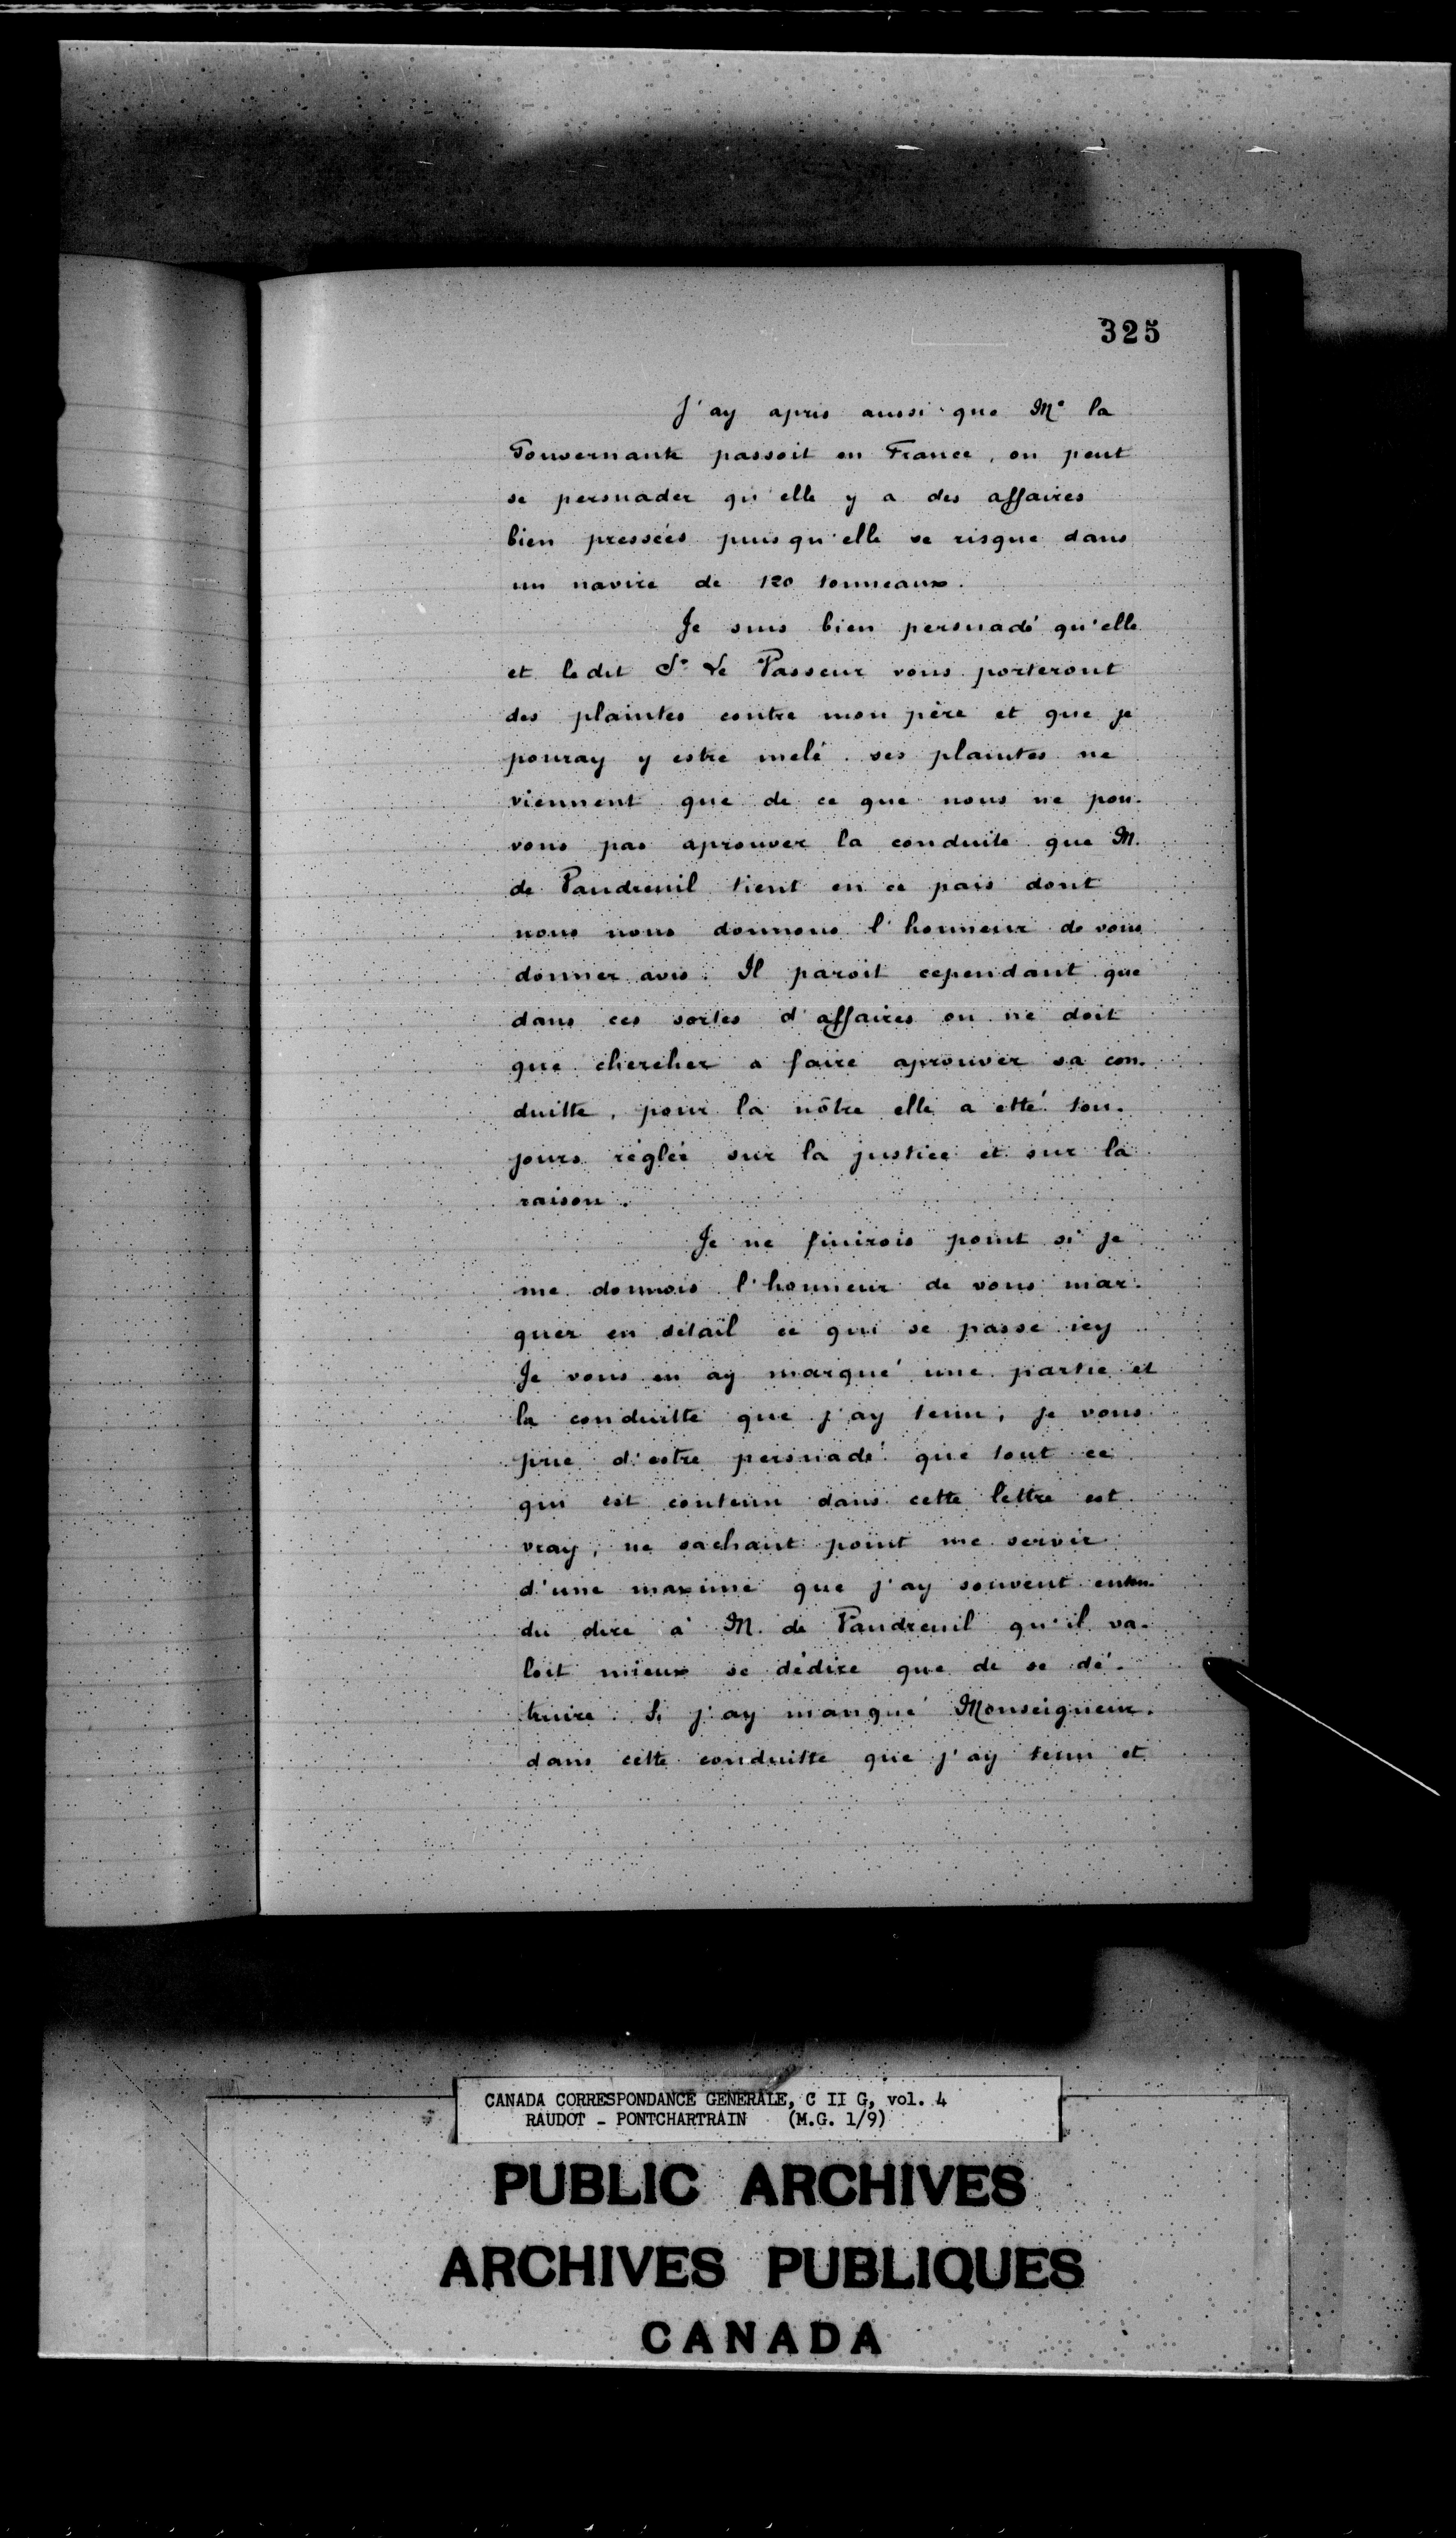 325
J'ay apris aussi que Me la
Gouvernante passoit en France, on peut
se persuader qu'elle y a des affaires
bien pressées puisqu'elle se risque dans
un navire de 120 tonneaux.
Je suis bien persuadé qu'elle
et ledit Sr Le Vasseur vous porteront
des plaintes contre mon père et que je
pouray y estre melé. ses plaintes ne
viennent que de ce que nous ne pou-
vons pas aprouver la conduite que M.
de Vaudreuil tient en ce païs dont
nous nous donnons l'honneur de vous
donner avis. Il paroit cependant que
dans ces sortes d'affaires on ne doit
que chercher a faire aprouver sa con-
duitte, pour la nôtre elle a etté tou-
jours réglée sur la justice et sur la
raison.
Je ne finirois point si je
me donnois l'honneur de vous mar-
quer en détail ce qui se passe icy
Je vous en ay marqué une partie et
la conduitte que j'ay tenu, je vous
prie d'estre persuadé que tout ce
qui est contenu dans cette lettre est
vray, ne sachant point me servir
d'une maxime que j'ay souvent enten-
du dire à M. de Vaudreuil qu'il va-
loit mieux se dédire que de se dé-
truire. Si j'ay manqué Monseigneur.
dans cette conduitte que j'ay tenu et
CANADA CORRESPONDANCE GENERALE, C II G, vol. 4
RAUDOT - PONTCHARTRAIN (M.G. 1/9)
PUBLIC ARCHIVES
ARCHIVES PUBLIQUES
CANADA